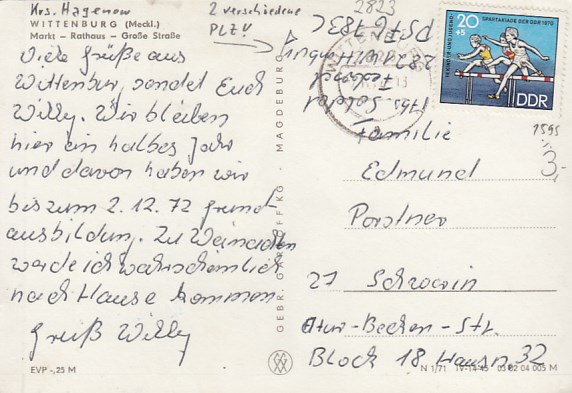 Krs. Hagenow
WITTENBURG (Meckl.)
Markt – Rathaus – Große Straße
2 verschiedene
PLZV
Viele Grüße aus
Wittenburg sendet Euch
Willy. Wir bleiben
hier ein halbes Jahr
und davon haben wir
bis zum 2.12.72 grund-
ausbildung. Zu Weinachten
werde ich wahrscheinlich
nach Hause kommen
Gruß Willy
EVP -,25 M
MAGDEBURG
GEBR.
KG
2823
PSF 76 783 C
2821 Wittenburg
Hts. Soldat
20
+5
SPARTAKIADE DER DDR 1970
DDR
1595
3,-
Familie
Edmund
Porstner
27 Schwerin
Block 18 Hausn. 32
N 1/71 IV-14-45 03 02 04 005 M